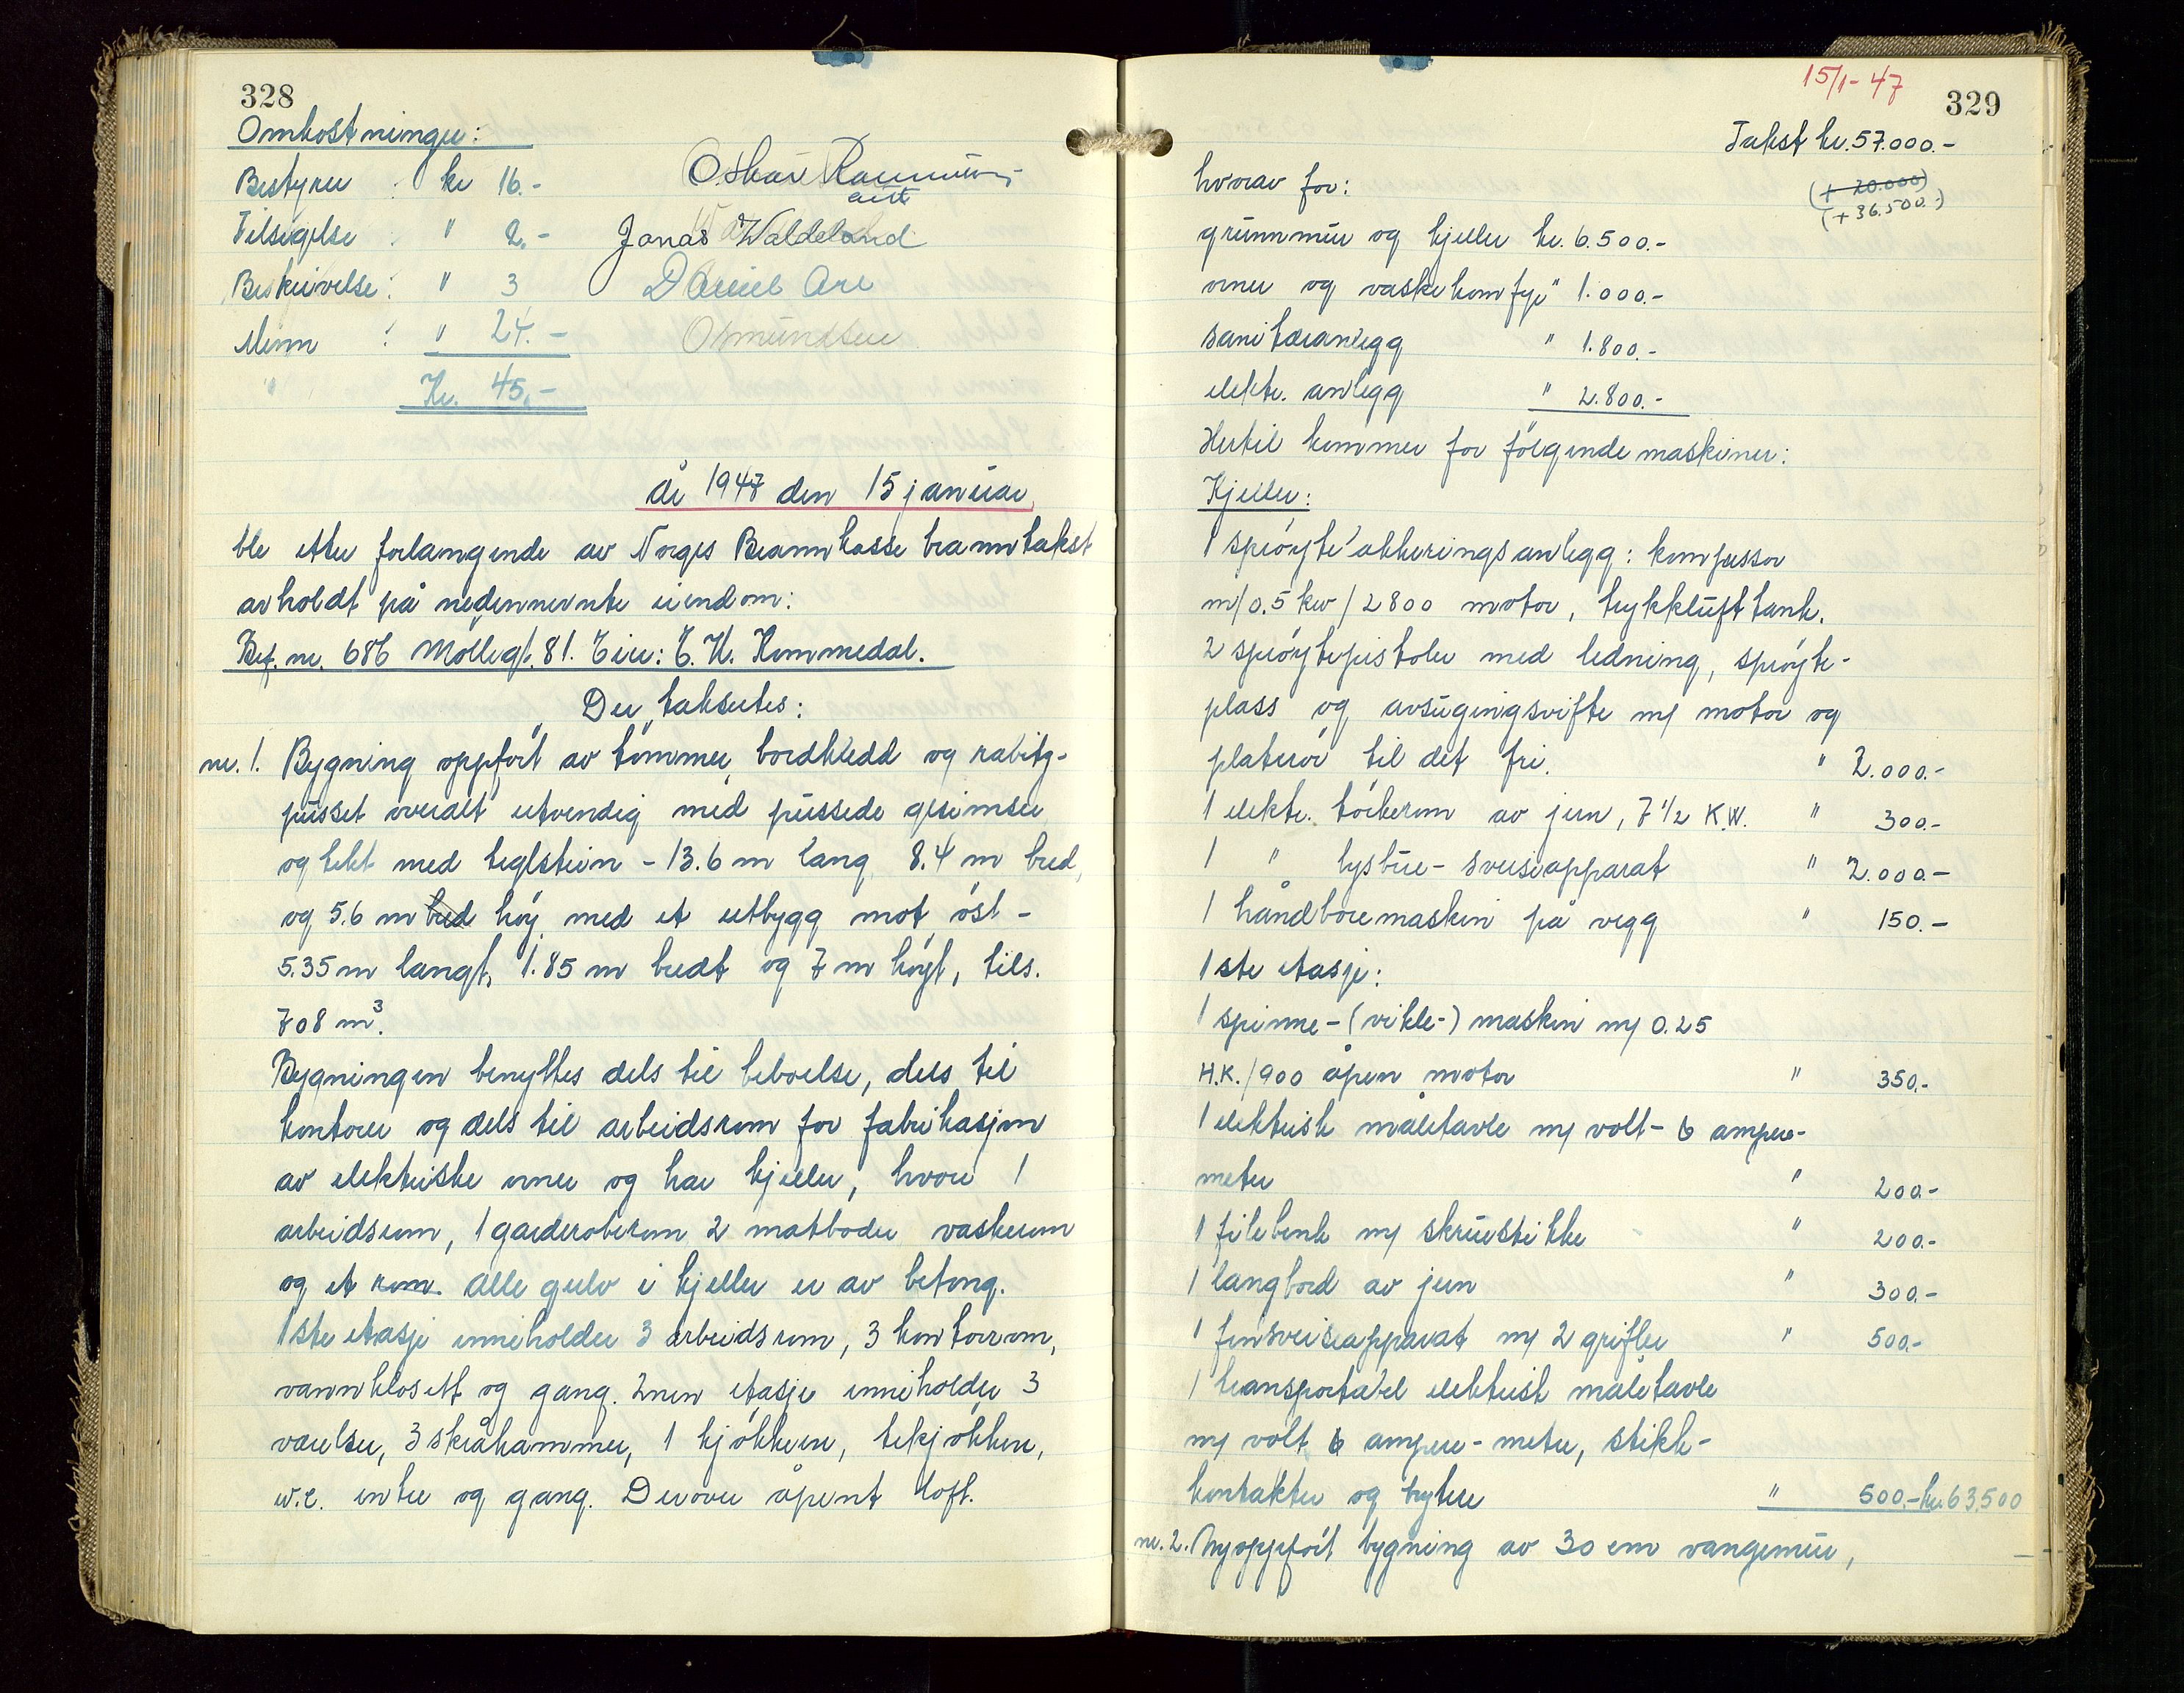 328
Omkostninger:
Bestyrer : kr 16.-
Tilsigelse : " 2.-
Beskrivelse: " 3
Menn : " 24.-
" Kr. 45.-
Oskar Rasmussen
Jonas Waldeland
Daniel Are
Osmundsen
år 1947 den 15 januar
ble etter forlangende av Norges Brannkasse branntakst
avholdt på nedennevnte eiendom:
Bef. nr. 686 Møllegt. 81. Eier: E. K. Kommedal.
Der taksertes:
nr. 1. Bygning oppført av tømmer, bordkledd og rabitz-
pusset overalt utvendig med pussede gesimser
og tekt med teglstein - 13.6 m lang 8.4 m bred,
og 5.6 m bred høy, med et utbygg mot øst -
5.35 m langt, 1.85 m bredt og 7 m høyt, tils.
708 m³.
Bygningen benyttes dels til beboelse, dels til
kontorer og dels til arbeidsrom for fabrikasjon
av elektriske ovner og har kjeller, hvori 1
arbeidsrom, 1 garderoberom 2 matboder vaskerom
og et rom. Alle gulv i kjeller er av betong.
1ste etasje inneholder 3 arbeidsrom, 3 kontorrom,
vannklosett og gang. 2nen etasje inneholder 3
værelser, 3 skråkammer, 1 kjøkken, tekjøkken,
w.c. entre og gang. Derover åpent loft.
15/1-47
329
Takst kr. 57.000.-
(+ 20.000)
(+ 36.500.-)
hvorav for:
grunnmur og kjeller kr. 6.500.-
ovner og vaskekomfyr " 1.000.-
sanitæranlegg " 1.800.-
elektr. anlegg " 2.800.-
Hertil kommer for følgende maskiner:
Kjeller:
1 sprøytelakkeringsanlegg: kompressor
m/0.5 kw/2800 motor, trykklufttank.
2 sprøytepistoler med ledning, sprøyte-
plass og avsugingsvifte m/ motor og
platerør til det fri. " 2.000.-
1 elektr. tørkerom av jern, 7 1/2 K.W. " 300.-
1 " lysbue-sveiseapparat " 2.000.-
1 håndboremaskin på vegg " 150.-
1ste etasje:
1 spinne-(vikle-) maskin m/ 0.25
H.K./900 åpen motor " 350.-
1 elektrisk måletavle m/ volt- & ampere-
meter " 200.-
1 filebenk m/ skruestikke " 200.-
1 langbord av jern " 300.-
1 finsveiseapparat m/ 2 grifler " 500.-
1 transportabel elektrisk måletavle
m/ volt & ampere-meter, stikk-
kontakter og brytere " 500.- kr. 63.500
nr. 2. Nyoppført bygning av 30 cm vangemur,